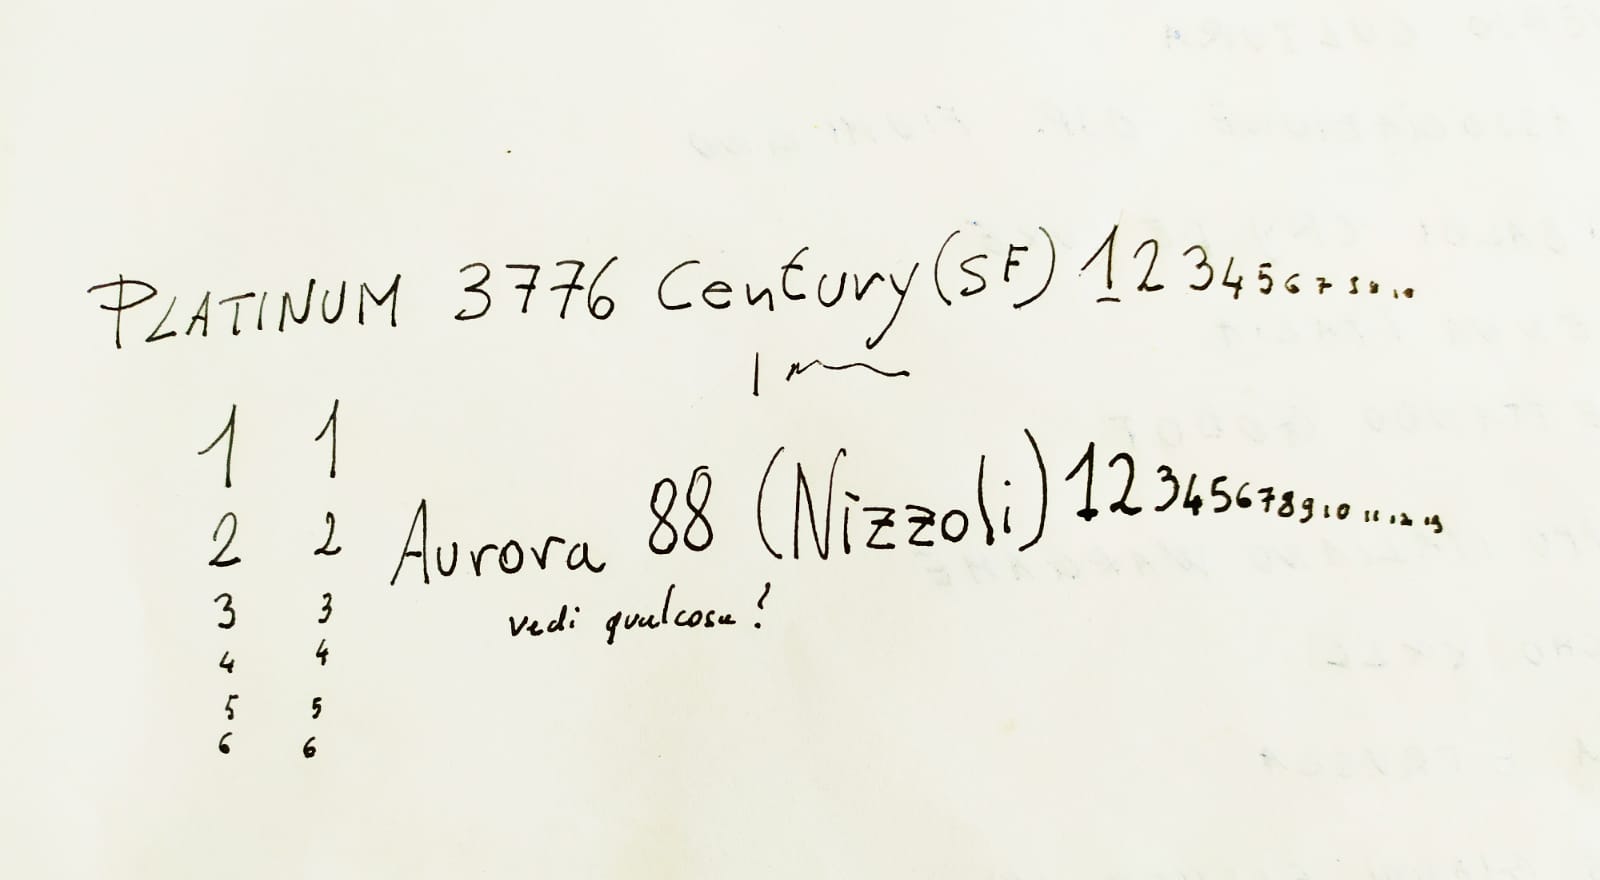 PLATINUM 3776 Century (SF) 1 2 3 4 5 6 7 8 9 10
1 1
2 2
Aurora 88 (Nizzoli) 1 2 3 4 5 6 7 8 9 10 11 12 13
3 3
vedi qualcosa?
4 4
5 5
6 6